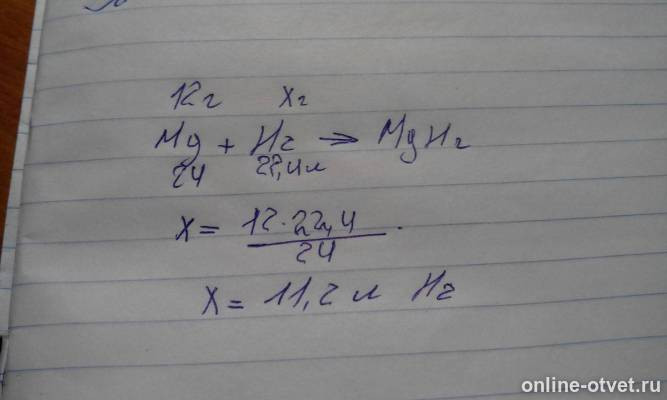 12г xг
Mg + H2 → MgH2
24 22,4л
x = 12·22,4
24
x = 11,2 л H2
online-otvet.ru